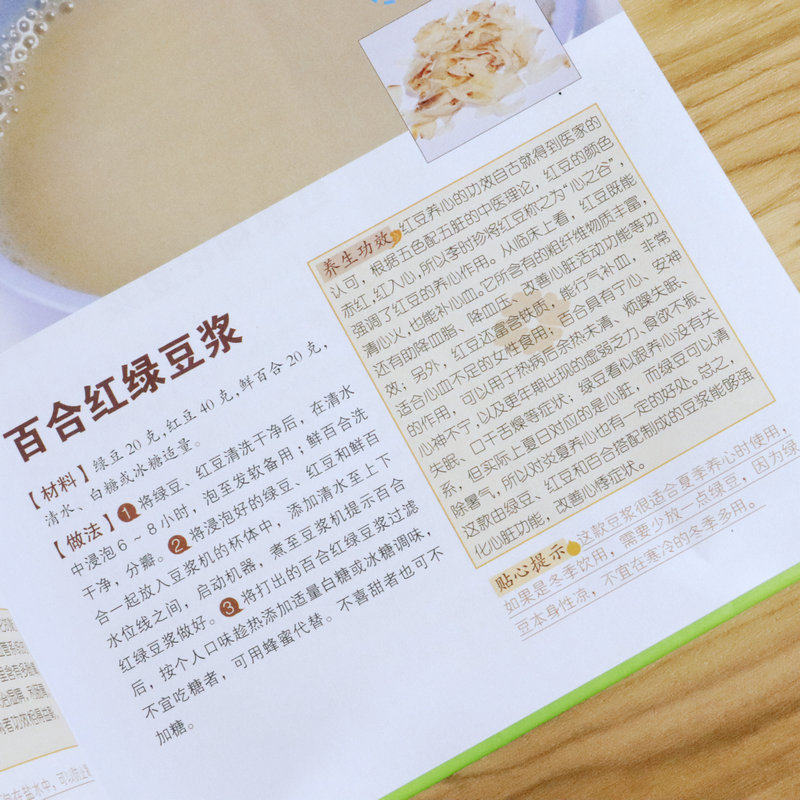 百合红绿豆浆
【材料】绿豆20克,红豆40克,鲜百合20克,
清水、白糖或冰糖适量。
【做法】1将绿豆、红豆清洗干净后,在清水
中浸泡6~8小时,泡至发软备用;鲜百合洗
干净,分瓣。2将浸泡好的绿豆、红豆和鲜百
合一起放入豆浆机的杯体中,添加清水至上下
水位线之间,启动机器,煮至豆浆机提示百合
红绿豆浆做好。3将打出的百合红绿豆浆过滤
后,按个人口味趁热添加适量白糖或冰糖调味,
不宜吃糖者,可用蜂蜜代替。不喜甜者也可不
加糖。
养生功效 红豆养心的功效自古就得到医家的
认可,根据五色配五脏的中医理论,红豆的颜色
赤红,红入心,所以李时珍将红豆称之为“心之谷”,
强调了红豆的养心作用。从临床上看,红豆既能
清心火,也能补心血。它所含有的粗纤维物质丰富,
还有助降血脂、降血压、改善心脏活动功能等功
效;另外,红豆还富含铁质,能行气补血,非常
适合心血不足的女性食用;百合具有宁心、安神
的作用,可以用于热病后余热未清、烦躁失眠、
心神不宁,以及更年期出现的虚弱乏力、食欲不振、
失眠、口干舌燥等症状;绿豆看似跟养心没有关
系,但实际上夏日对应的是心脏,而绿豆可以清
除暑气,所以对炎夏养心也有一定的好处。总之,
这款由绿豆、红豆和百合搭配制成的豆浆能够强
化心脏功能,改善心悸症状。
贴心提示 这款豆浆很适合夏季养心时使用,
如果是冬季饮用,需要少放一点绿豆,因为绿
豆本身性凉,不宜在寒冷的冬季多用。